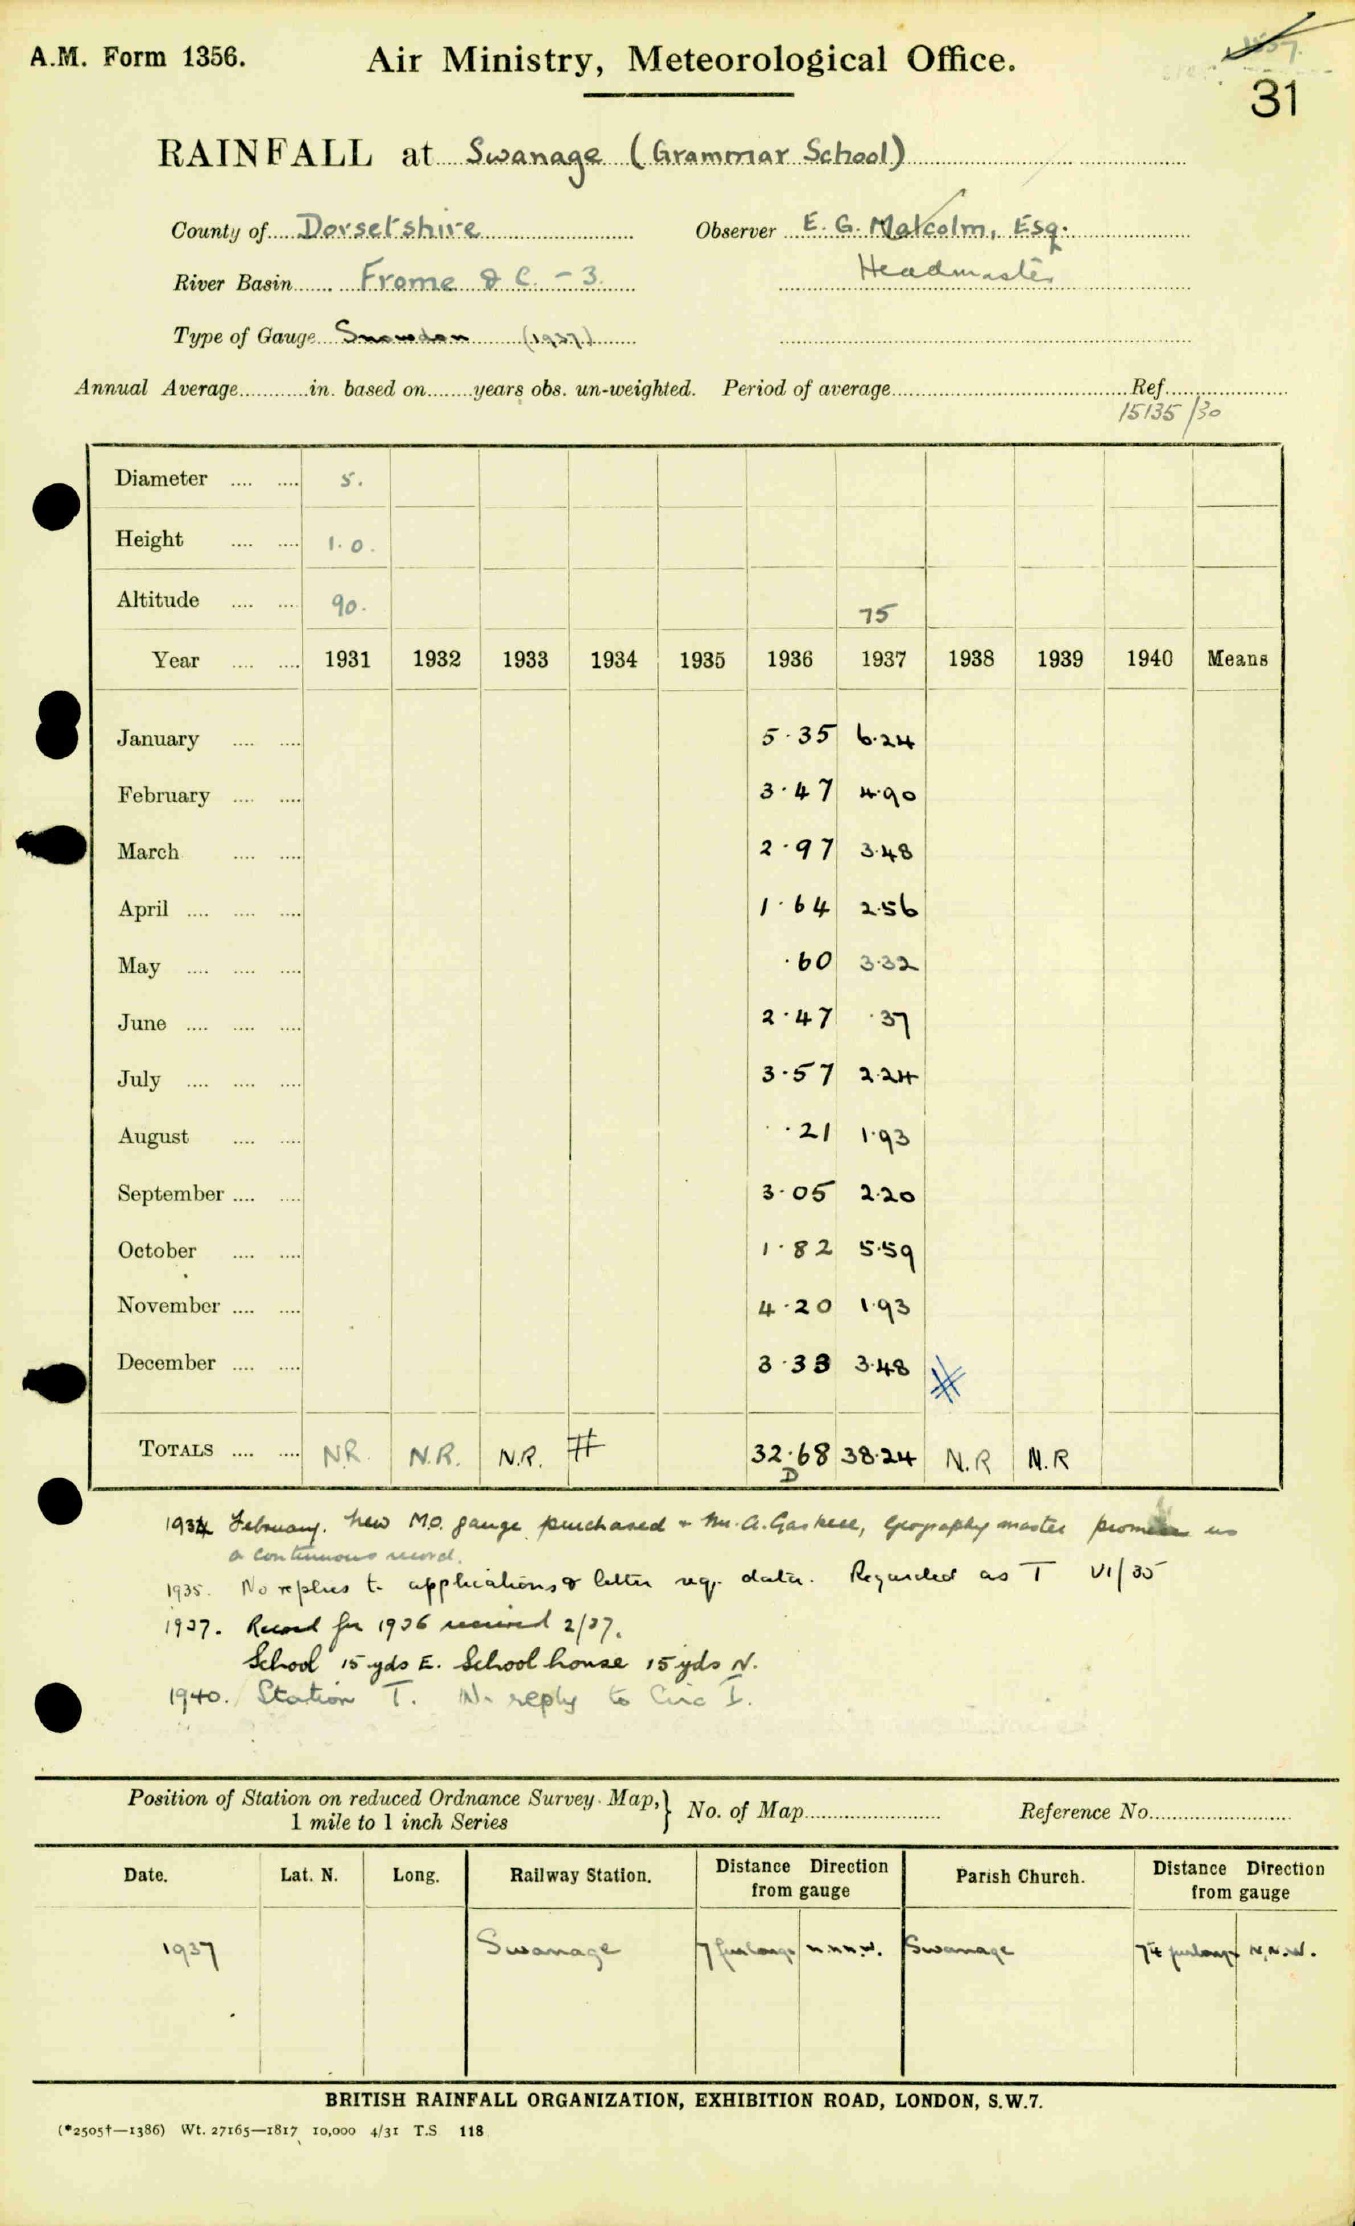 A.M. Form 1356.
Air Ministry, Meteorological Office.
31
RAINFALL at Swanage (Grammar School)
County of Dorsetshire Observer E. G. Malcolm, Esq.
River Basin Frome & C. - 3. Headmaster
Type of Gauge Snowdon (1937)
Annual Average in. based on years obs. un-weighted. Period of average Ref.
15135/30
Diameter 5.
Height 1.0.
Altitude 90. 75
Year 1931 1932 1933 1934 1935 1936 1937 1938 1939 1940 Means
January 5.35 6.24
February 3.47 4.90
March 2.97 3.48
April 1.64 2.56
May .60 3.32
June 2.47 .37
July 3.57 2.24
August .21 1.93
September 3.05 2.20
October 1.82 5.59
November 4.20 1.93
December 3.33 3.48
TOTALS N.R. N.R. N.R. # 32.68 38.24 N.R N.R
D
1934 February. New M.O. gauge purchased & Mr. A. Gaskell, Geography master promises us
a continuous record.
1935. No replies to applications & letter req. data. Regarded as T VI/35
1937. Record for 1936 received 2/37.
School 15 yds E. School house 15 yds N.
1940. Station T. No reply to Circ I.
Position of Station on reduced Ordnance Survey Map, 1 mile to 1 inch Series } No. of Map Reference No.
Date. Lat. N. Long. Railway Station. Distance Direction from gauge Parish Church. Distance Direction from gauge
1937 Swanage 7 furlongs N.N.W. Swanage 7¼ furlongs N.N.W.
BRITISH RAINFALL ORGANIZATION, EXHIBITION ROAD, LONDON, S.W.7.
(*2505†—1386) Wt. 27165—1817 10,000 4/31 T.S 118